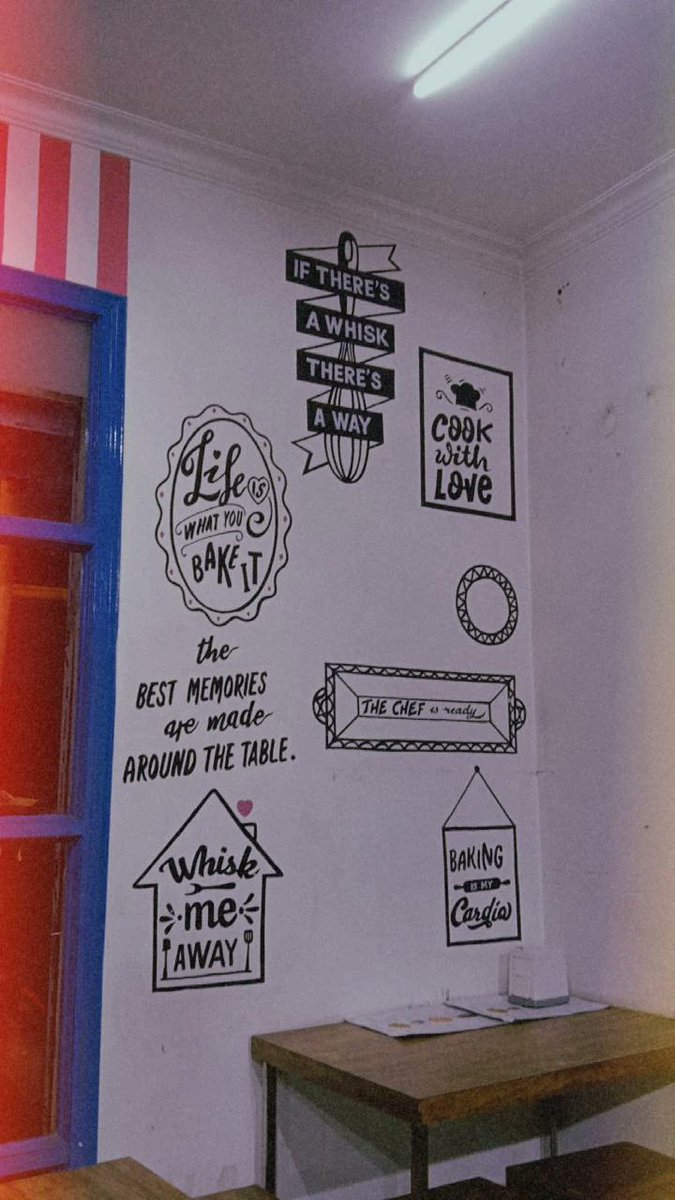 IF THERE'S
A WHISK
THERE'S
A WAY
COOK
with
LOVE
Life
IS
WHAT YOU
BAKE IT
the
BEST MEMORIES
are made
AROUND THE TABLE.
THE CHEF is ready
Whisk
me
AWAY
BAKING
IS MY
Cardio